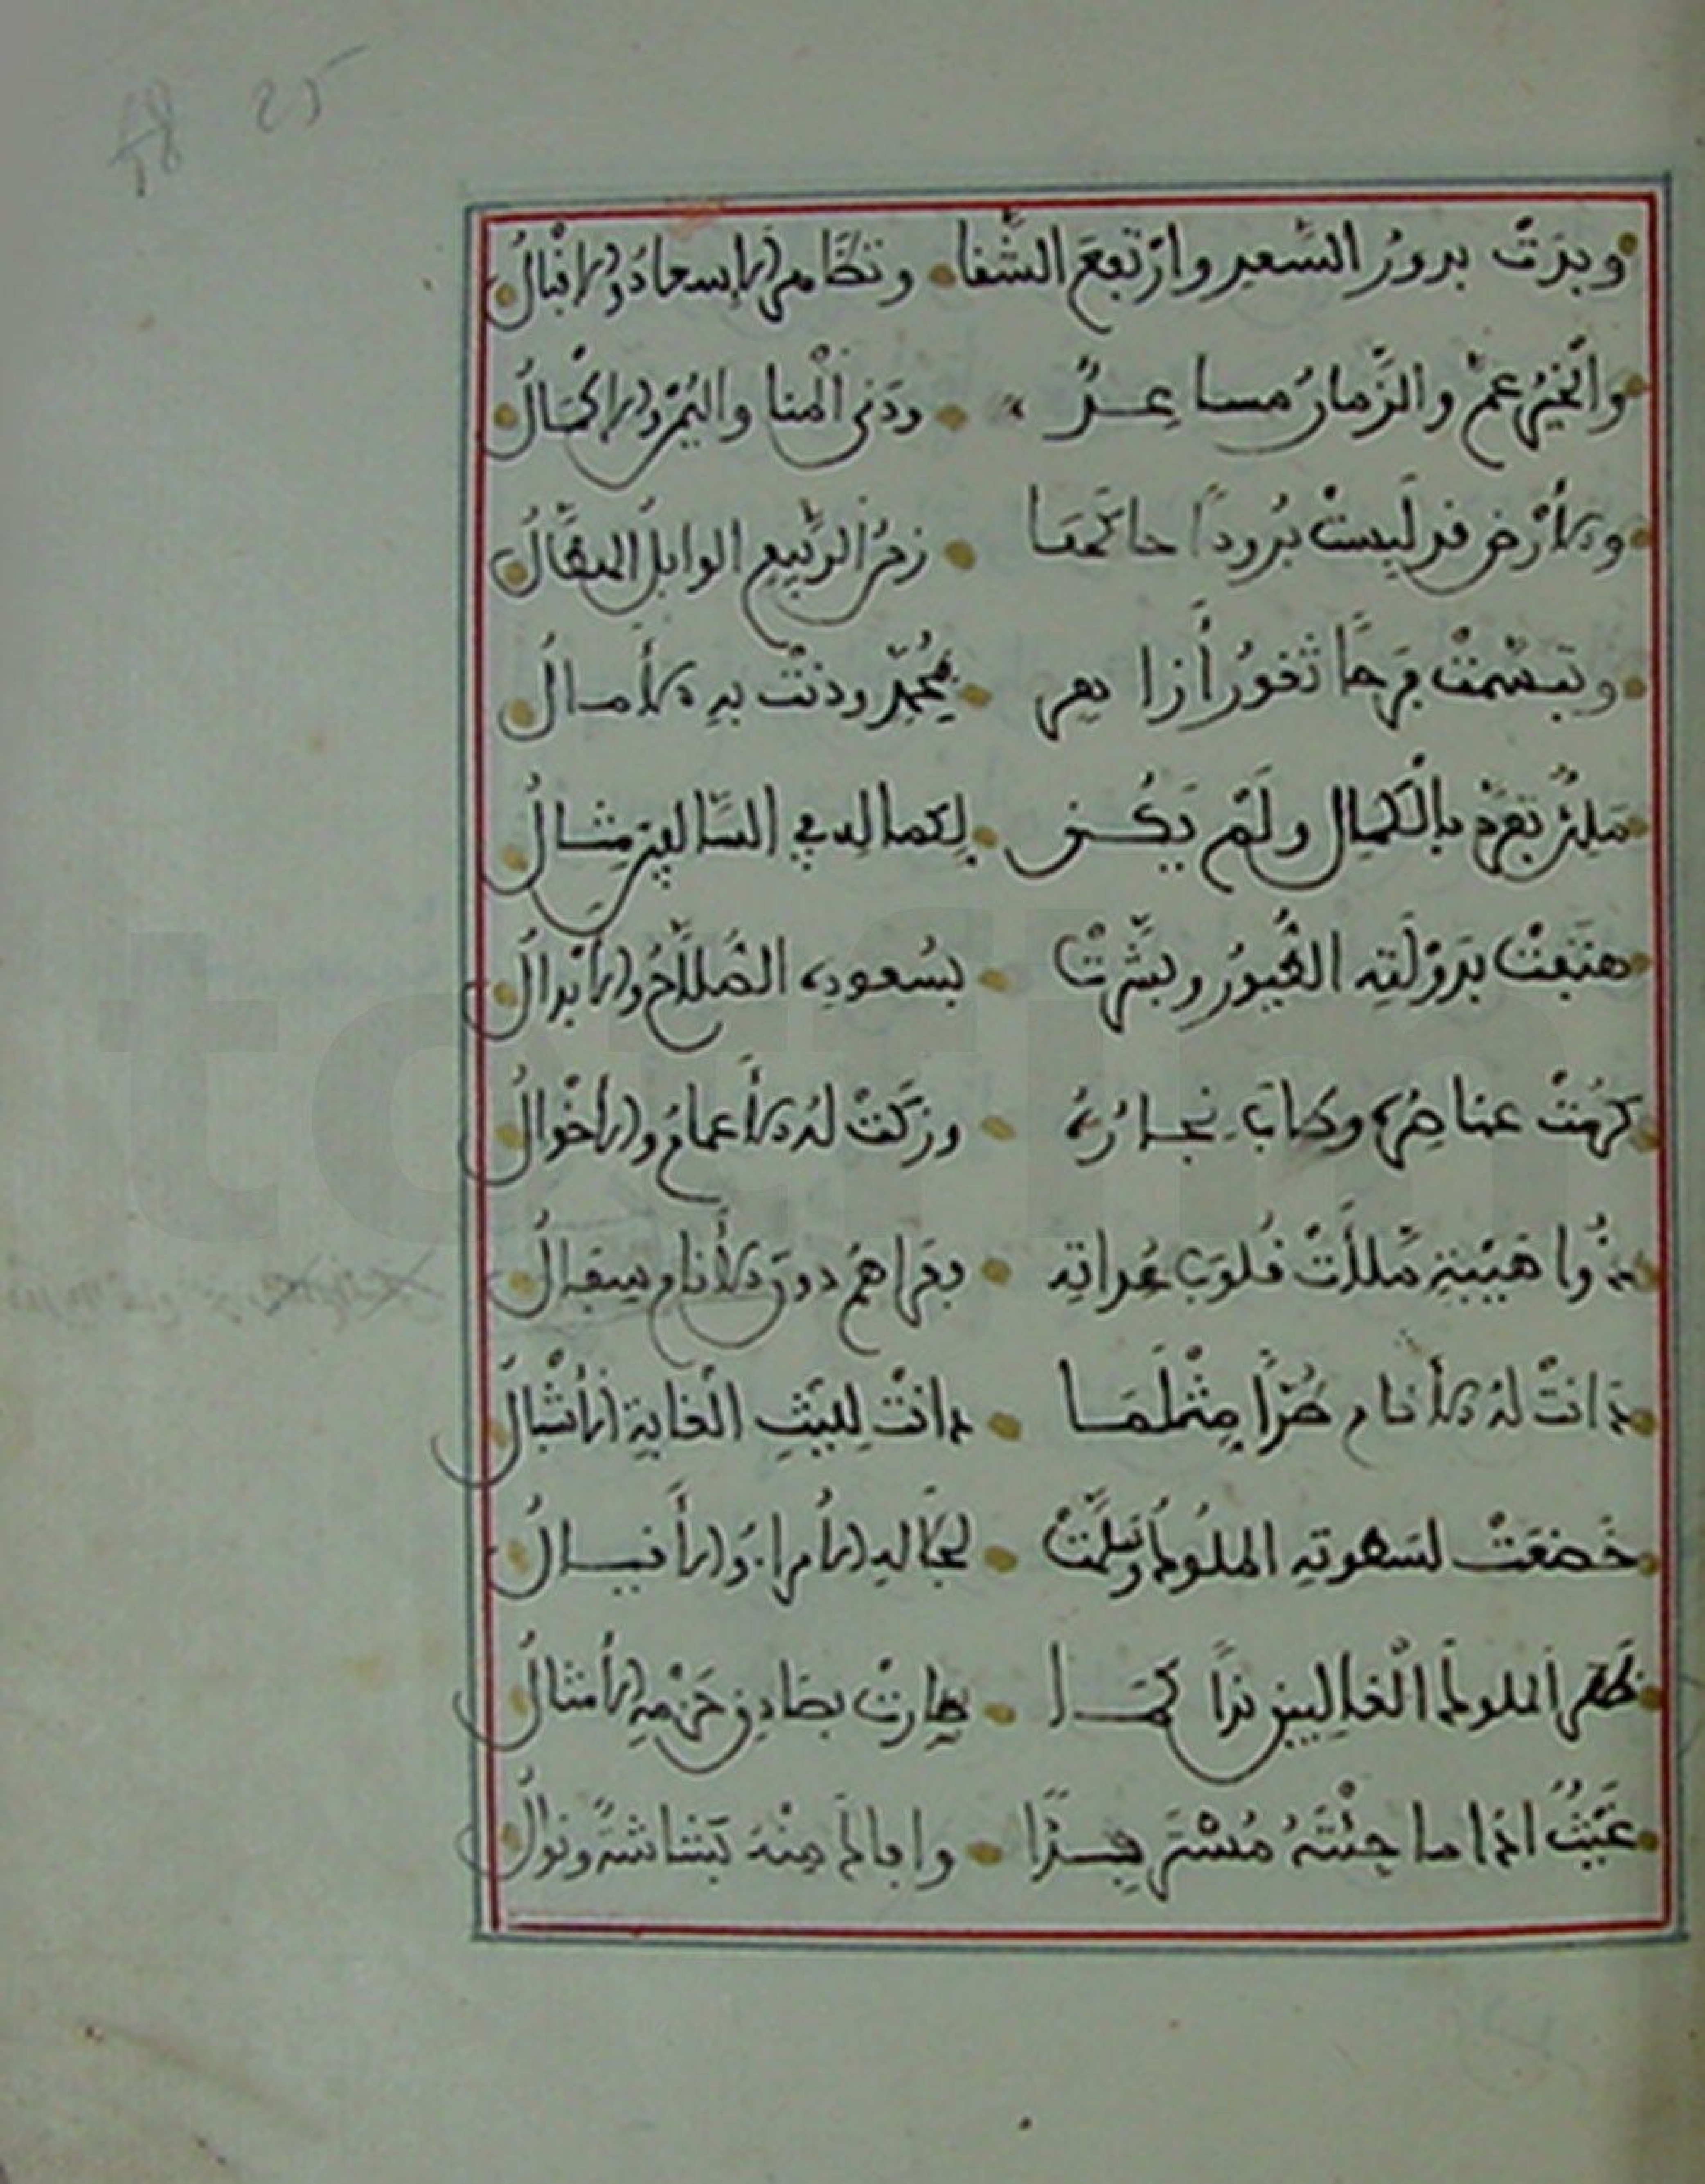 وبدَتْ بدورُ السَّعدِ وارْتفعَ الشَّفا وتظَاهر الإسعادُ والإقْبالُ
والخيرُ عمَّ والزَّمانُ مساعِدٌ ودَنى الْمنا واليُمْنُ والإكْمَالُ
والأرْض قد لَبست بُروداً حاكَهَا زهرُ الرَّبيع الوابلُ الهطَّالُ
وتبسَّمتْ فرحًا ثغورُ أزاهر بمُحَمَّدٍ ودنتْ به الأمالُ
مَلِكٌ تفرَّدَ بالْكَمالِ ولَمْ يَكُن لِكمالِه في السَّالفين مِثالُ
هتَفتْ بدَوْلَتِه الطُّيورُ وبشَّرتْ بسُعودِه الصُّلاَّحُ والأبْدالُ
كرُمَتْ عناصِرُه وطابَ نِجارُهُ وزكَتْ لهُ الأعمامُ والأخْوالُ
ذُوا هَيْبَةٍ مَلَأَتْ قُلوبَ عُداتِه
دَانتْ لهُ الأنام طُرًّا مِثْلَمَا دانتْ لِلَيْثِ الْغابةِ الأشْبالُ
خَضعَتْ لسَطوتِه الملُوكُ وسلَّمتْ لجَلالِه الأُمراءُ والأَقيالُ
قهر الملوكَ الغالبين ندًا كمَا طارتْ بصَادِقِ حَزمِه الأمثالُ
غَيْثٌ اذا ما جِئْتَهُ مُسْتَرفِدًا وافاكَ مِنْهُ بَشَاشَةٌ ونوالُ
25